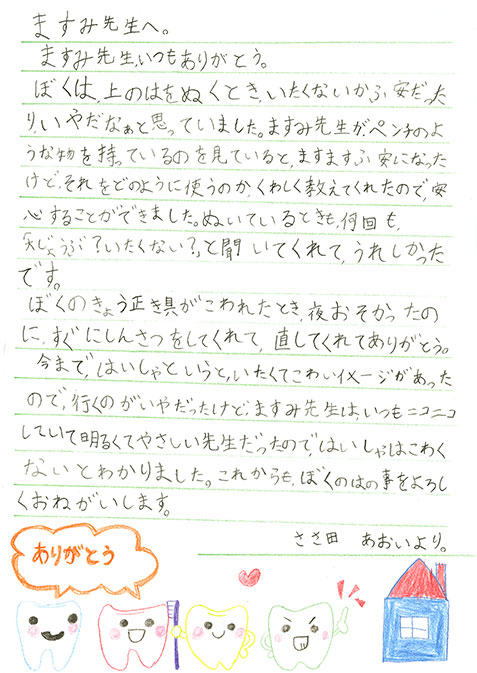 ますみ先生へ。
ますみ先生、いつもありがとう。
ぼくは、上のはをぬくとき、いたくないかふ安だった
り、いやだなぁと思っていました。ますみ先生がペンチのよ
うな物を持っているのを見ていると、ますますふ安になった
けど、それをどのように使うのか、くわしく教えてくれたので、安
心することができました。ぬいているときも、何回も、
「大じょうぶ?いたくない?」と聞いてくれて、うれしかった
です。
ぼくのきょう正き具がこわれたとき、夜おそかったの
に、すぐにしんさつをしてくれて、直してくれてありがとう。
今まで、はいしゃというと、いたくてこわいイメージがあった
ので、行くのがいやだったけど、ますみ先生は、いつもニコニコ
していて明るくてやさしい先生だったので、はいしゃはこわく
ないとわかりました。これからも、ぼくのはの事をよろし
くおねがいします。
ささ田 あおいより。
ありがとう